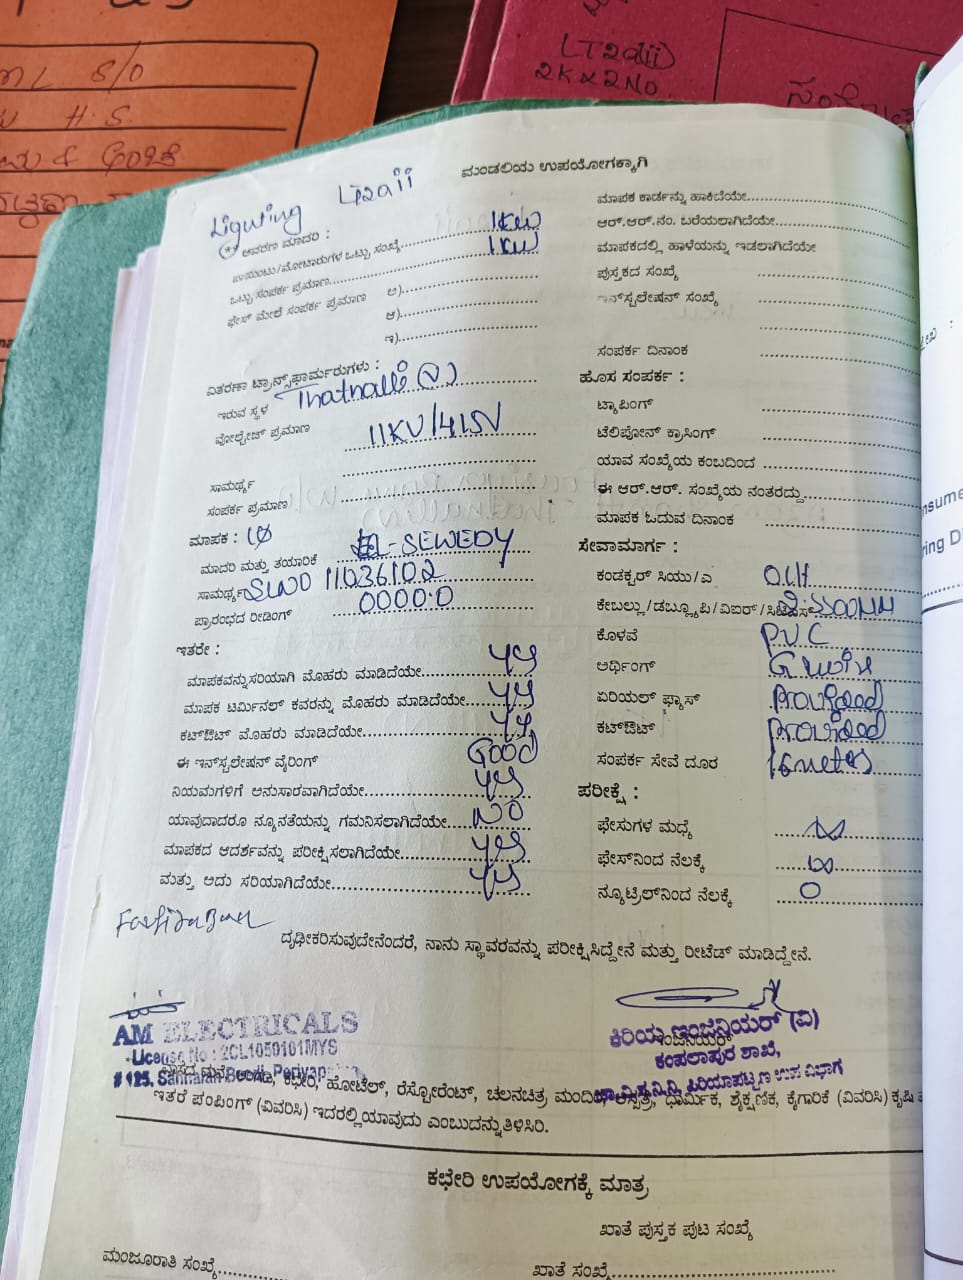 LT2a(ii)
2K x 2 No.
S/O
H.S.
ಮಂಡಲಿಯ ಉಪಯೋಗಕ್ಕಾಗಿ
Lighting LT2aii
ಆವರಣ ಮಾದರಿ :
ಪಾಯಿಂಟು/ಮೋಟಾರುಗಳ ಒಟ್ಟು ಸಂಖ್ಯೆ 1KW
ಒಟ್ಟು ಸಂಪರ್ಕ ಪ್ರಮಾಣ 1KW
ಫೇಸ್ ಮೇಲೆ ಸಂಪರ್ಕ ಪ್ರಮಾಣ ಅ)
ಆ)
ಇ)
ವಿತರಣಾ ಟ್ರಾನ್ಸ್‌ಫಾರ್ಮರುಗಳು :
ಇರುವ ಸ್ಥಳ Thathalli (V)
ವೋಲ್ಟೇಜ್ ಪ್ರಮಾಣ 11KV/415V
ಸಾಮರ್ಥ್ಯ
ಸಂಪರ್ಕ ಪ್ರಮಾಣ
ಮಾಪಕ : 1Ø
ಮಾದರಿ ಮತ್ತು ತಯಾರಿಕೆ EL-SEWEDY
ಸಾಮರ್ಥ್ಯ SLNO 11036102
ಪ್ರಾರಂಭದ ರೀಡಿಂಗ್ 0000.0
ಇತರೇ :
ಮಾಪಕವನ್ನು ಸರಿಯಾಗಿ ಮೊಹರು ಮಾಡಿದೆಯೇ yes
ಮಾಪಕ ಟರ್ಮಿನಲ್ ಕವರನ್ನು ಮೊಹರು ಮಾಡಿದೆಯೇ yes
ಕಟ್‌ಔಟ್ ಮೊಹರು ಮಾಡಿದೆಯೇ yes
ಈ ಇನ್‌ಸ್ಟಲೇಷನ್ ವೈರಿಂಗ್ Good
ನಿಯಮಗಳಿಗೆ ಅನುಸಾರವಾಗಿದೆಯೇ yes
ಯಾವುದಾದರೂ ನ್ಯೂನತೆಯನ್ನು ಗಮನಿಸಲಾಗಿದೆಯೇ NO
ಮಾಪಕದ ಆದರ್ಶವನ್ನು ಪರೀಕ್ಷಿಸಲಾಗಿದೆಯೇ yes
ಮತ್ತು ಅದು ಸರಿಯಾಗಿದೆಯೇ yes
ಮಾಪಕ ಕಾರ್ಡನ್ನು ಹಾಕಿದೆಯೇ
ಆರ್.ಆರ್.ನಂ. ಬರೆಯಲಾಗಿದೆಯೇ
ಮಾಪಕದಲ್ಲಿ ಹಾಳೆಯನ್ನು ಇಡಲಾಗಿದೆಯೇ
ಪುಸ್ತಕದ ಸಂಖ್ಯೆ
ಇನ್‌ಸ್ಟಲೇಷನ್ ಸಂಖ್ಯೆ
ಸಂಪರ್ಕ ದಿನಾಂಕ
ಹೊಸ ಸಂಪರ್ಕ :
ಟ್ಯಾಪಿಂಗ್
ಟೆಲಿಪೋನ್ ಕ್ರಾಸಿಂಗ್
ಯಾವ ಸಂಖ್ಯೆಯ ಕಂಬದಿಂದ
ಈ ಆರ್.ಆರ್. ಸಂಖ್ಯೆಯ ನಂತರದ್ದು
ಮಾಪಕ ಓದುವ ದಿನಾಂಕ
ಸೇವಾಮಾರ್ಗ :
ಕಂಡಕ್ಟರ್ ಸಿಯು/ಎ OLH
ಕೇಬಲ್ಲು/ಡಬ್ಲ್ಯೂಪಿ/ವಿಐರ್/
ಕೊಳವೆ PVC
ಅರ್ಥಿಂಗ್
ಏರಿಯಲ್ ಫ್ಯೂಸ್ Provided
ಕಟ್‌ಔಟ್ Provided
ಸಂಪರ್ಕ ಸೇವೆ ದೂರ meters
ಪರೀಕ್ಷೆ :
ಫೇಸುಗಳ ಮಧ್ಯೆ ∞
ಫೇಸ್‌ನಿಂದ ನೆಲಕ್ಕೆ ∞
ನ್ಯೂಟ್ರಿಲ್‌ನಿಂದ ನೆಲಕ್ಕೆ 0
ದೃಢೀಕರಿಸುವುದೇನೆಂದರೆ, ನಾನು ಸ್ಥಾವರವನ್ನು ಪರೀಕ್ಷಿಸಿದ್ದೇನೆ ಮತ್ತು ರೀಟೆಡ್ ಮಾಡಿದ್ದೇನೆ.
AM ELECTRICALS
License No : 2CL1050101MYS
# 125,
ಕಿರಿಯ ಇಂಜಿನಿಯರ್ (ವಿ)
ಇಂಜಿನಿಯರ್
ಕಂಪಲಾಪುರ ಶಾಖೆ,
ಚಾ.ವಿ.ಸ.ನಿ.ನಿ, ಪಿರಿಯಾಪಟ್ಟಣ ಉಪ ವಿಭಾಗ
ವಾಸದ ಮನೆ, ಅಂಗಡಿ, ಕಛೇರಿ, ಹೋಟೆಲ್, ರೆಸ್ಟೋರೆಂಟ್, ಚಲನಚಿತ್ರ ಮಂದಿರ, ಆಸ್ಪತ್ರೆ, ಧಾರ್ಮಿಕ, ಶೈಕ್ಷಣಿಕ, ಕೈಗಾರಿಕೆ (ವಿವರಿಸಿ) ಕೃಷಿ
ಇತರೆ ಪಂಪಿಂಗ್ (ವಿವರಿಸಿ) ಇದರಲ್ಲಿ ಯಾವುದು ಎಂಬುದನ್ನು ತಿಳಿಸಿರಿ.
ಕಛೇರಿ ಉಪಯೋಗಕ್ಕೆ ಮಾತ್ರ
ಖಾತೆ ಪುಸ್ತಕ ಪುಟ ಸಂಖ್ಯೆ
ಮಂಜೂರಾತಿ ಸಂಖ್ಯೆ
ಖಾತೆ ಸಂಖ್ಯೆ